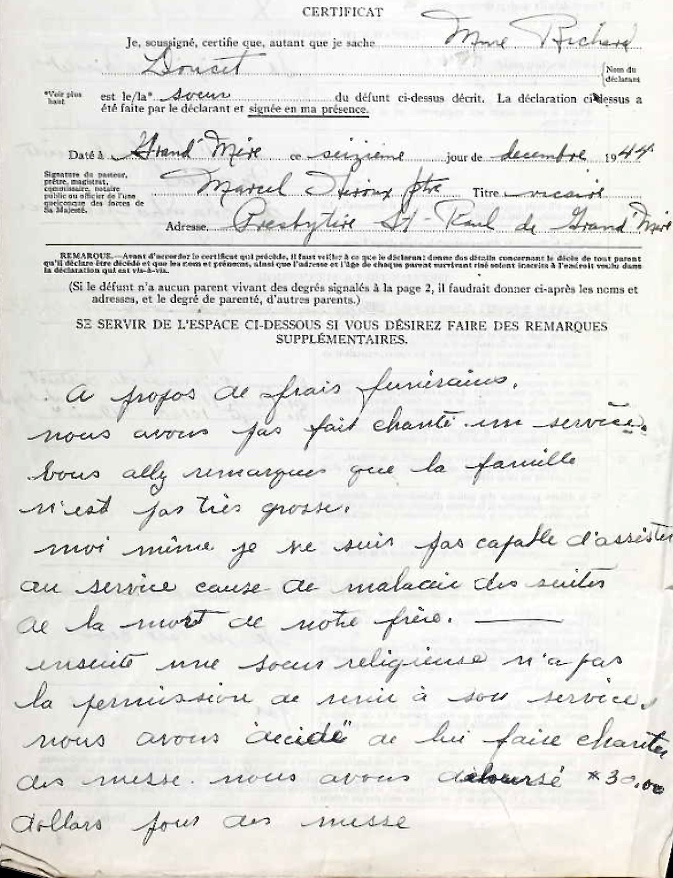 CERTIFICAT
Je, soussigné, certifie que, autant que je sache Mme Richard
Doucet (Nom du déclarant
*Voir plus haut
est le/la* soeur du défunt ci-dessus décrit. La déclaration ci-dessus a
été faite par le déclarant et signée en ma présence.
Daté à Grand'Mère ce seizième jour de decembre 1944
Signature du pasteur, prêtre, magistrat, commissaire, notaire public ou officier de l'une quelconque des forces de Sa Majesté.
Marcel Héroux ptre Titre vicaire
Adresse. Presbytère St-Paul de Grand'Mère
REMARQUE.—Avant d'accorder le certificat qui précède, il faut veiller à ce que le déclarant donne des détails concernant le décès de tout parent
qu'il déclare être décédé et que les nom et prénoms, ainsi que l'adresse et l'âge de chaque parent survivant visé soient inscrits à l'endroit voulu dans
la déclaration qui est vis-à-vis.
(Si le défunt n'a aucun parent vivant des degrés signalés à la page 2, il faudrait donner ci-après les noms et
adresses, et le degré de parenté, d'autres parents.)
SE SERVIR DE L'ESPACE CI-DESSOUS SI VOUS DÉSIREZ FAIRE DES REMARQUES
SUPPLÉMENTAIRES.
A propos de frais funéraires.
nous avons pas fait chanté un service.
Vous ally remarques que la famille
n'est pas très grosse.
moi même je ne suis pas capable d'assister
au service cause de maladie des suites
de la mort de notre frère.
ensuite une soeur religieuse n'a pas
la permission de venir à son service,
nous avons décidé de lui faire chanter
des messe. nous avons déboursé $30.00
dollars pour des messe